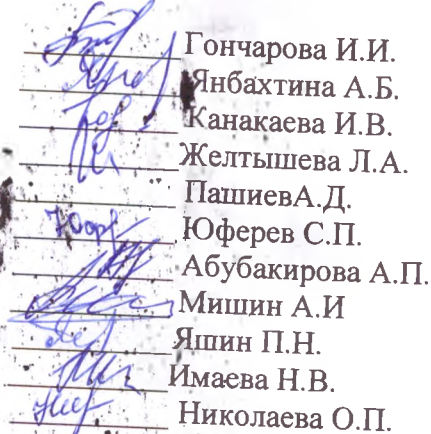 Гончарова И.И.
Янбахтина А.Б.
Канакаева И.В.
Желтышева Л.А.
ПашиевА.Д.
Юферев С.П.
Абубакирова А.П.
Мишин А.И
Яшин П.Н.
Имаева Н.В.
Николаева О.П.